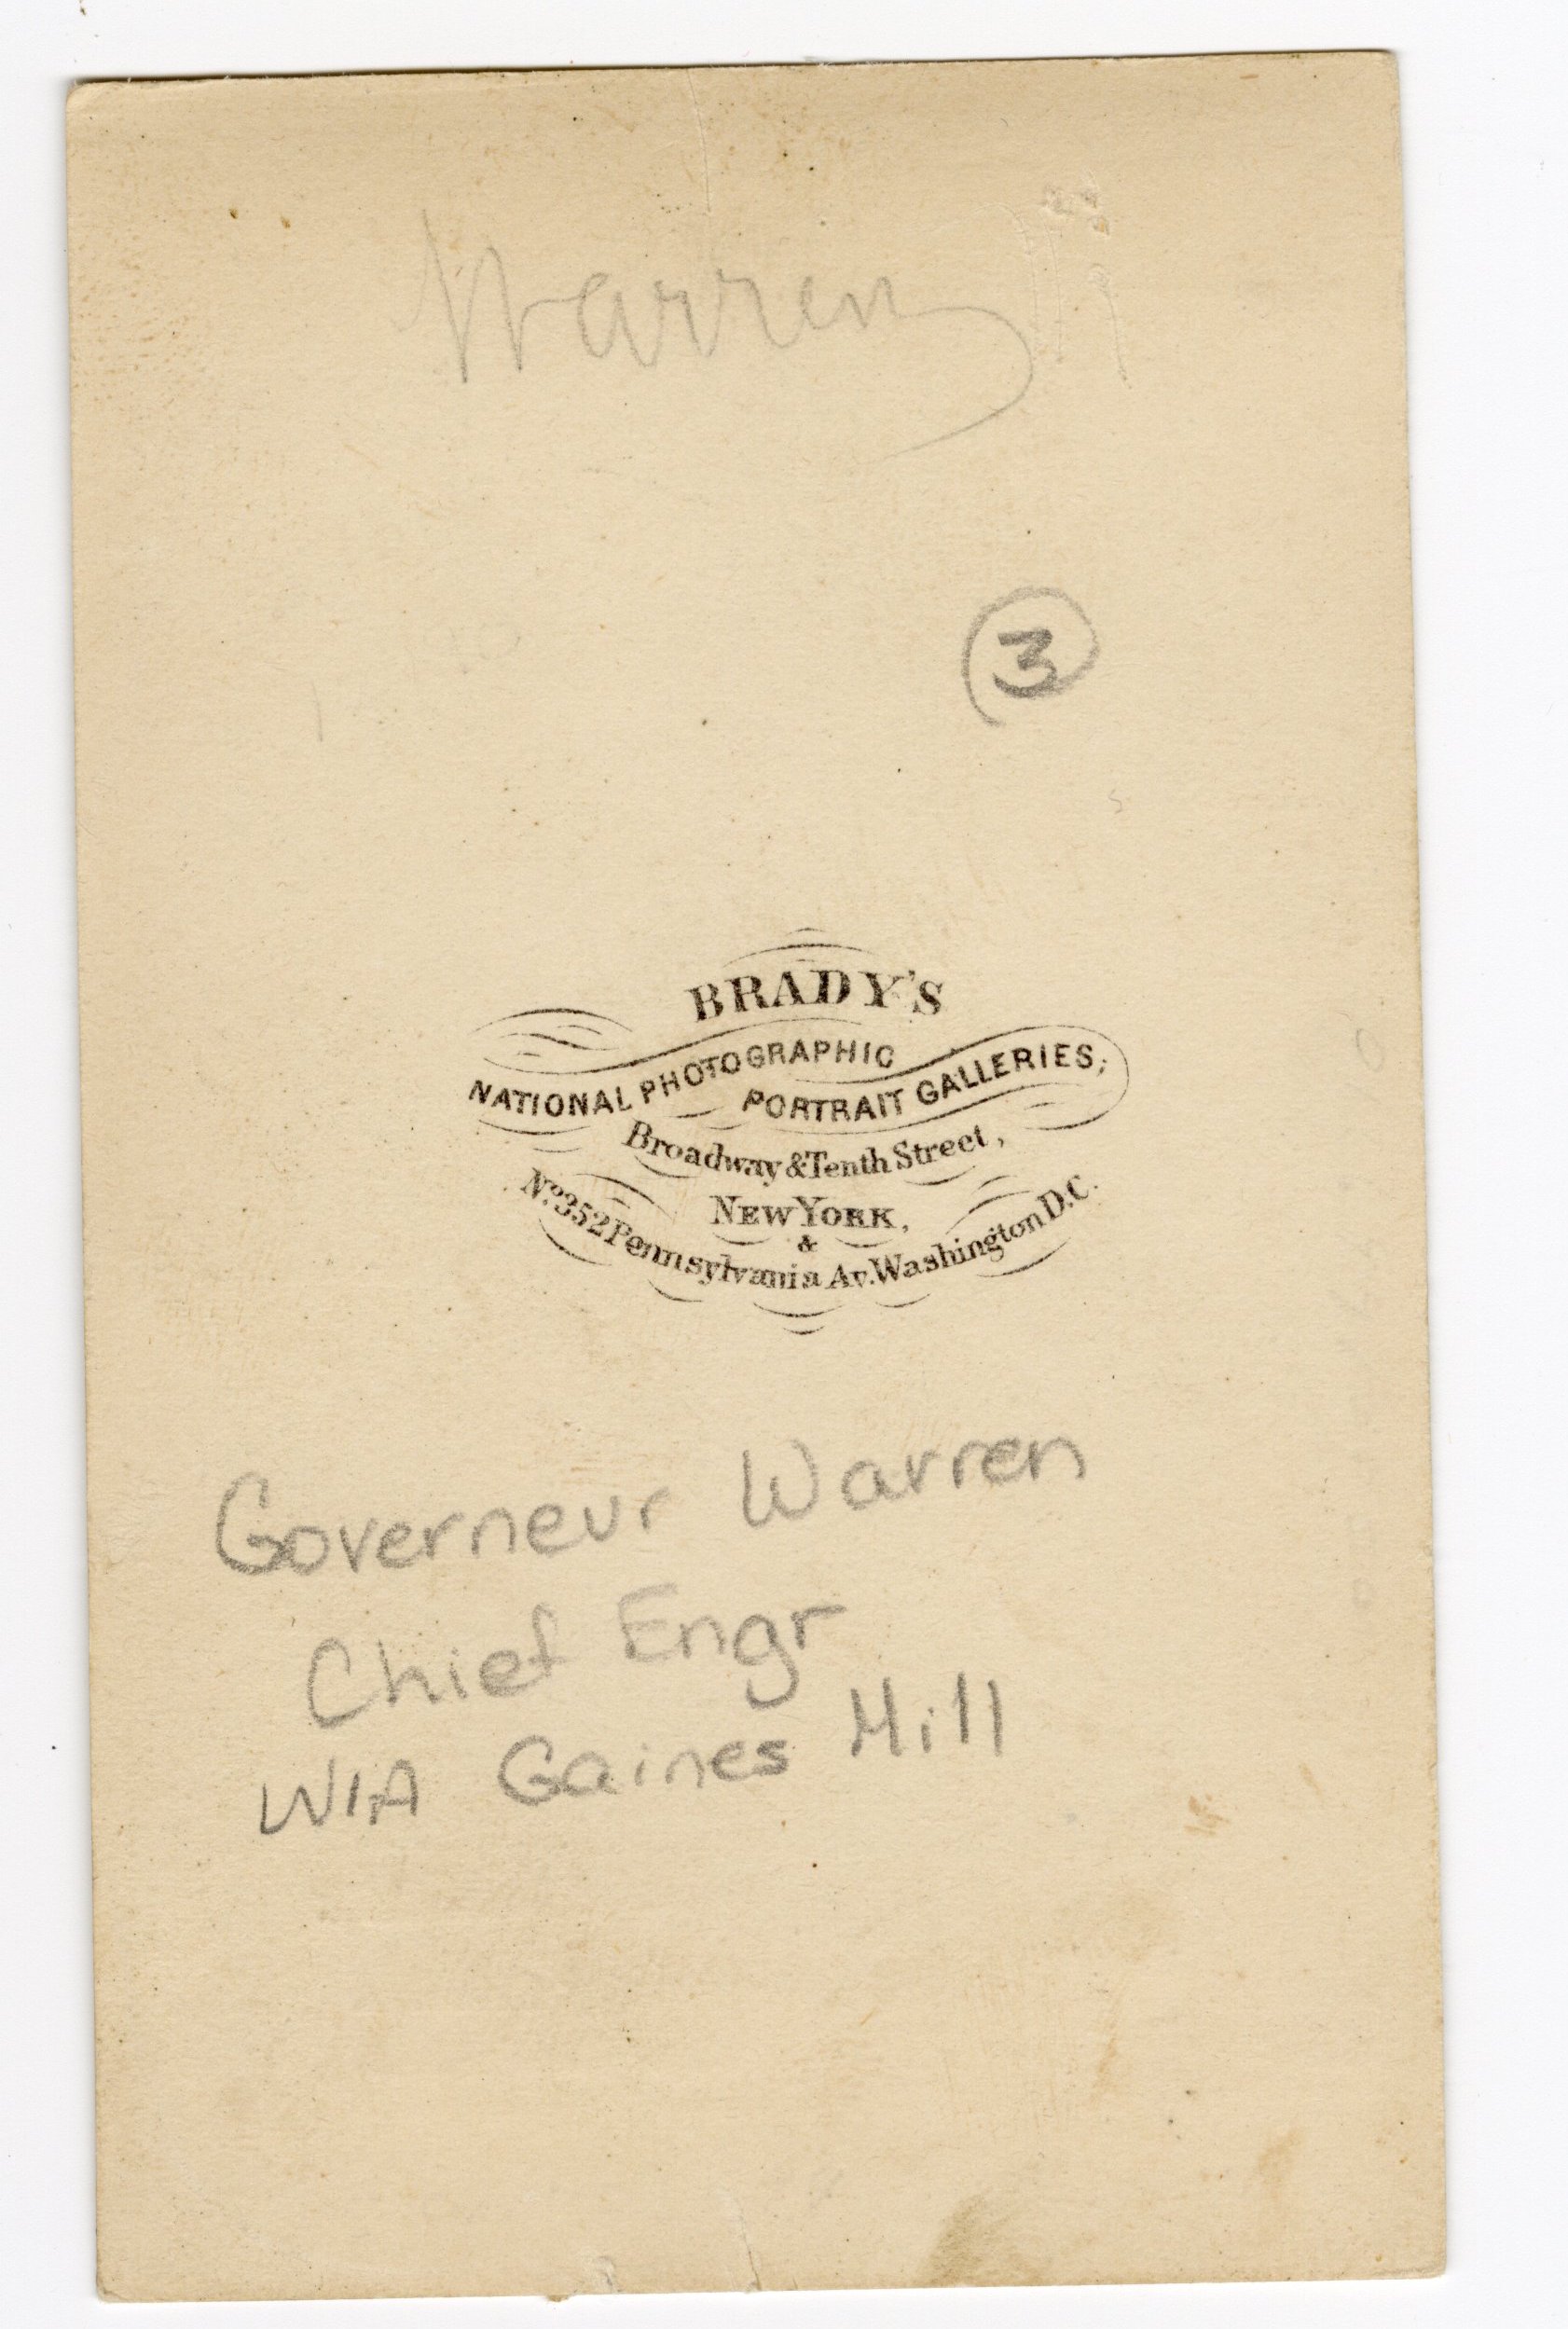 Warren
3
BRADY'S
NATIONAL PHOTOGRAPHIC
PORTRAIT GALLERIES,
Broadway & Tenth Street,
NEW YORK,
&
No. 352 Pennsylvania Av. Washington D.C.
Governeur Warren
Chief Engr
WIA Gaines Mill